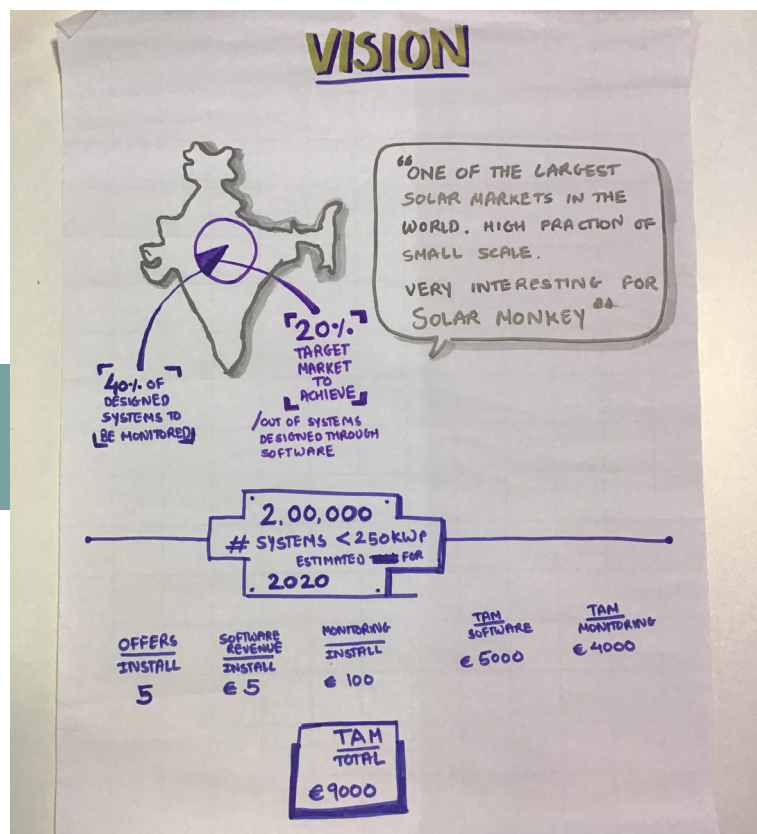 VISION
"ONE OF THE LARGEST
SOLAR MARKETS IN THE
WORLD. HIGH FRACTION OF
SMALL SCALE.
VERY INTERESTING FOR
SOLAR MONKEY"
40% OF
DESIGNED
SYSTEMS TO
BE MONITORED
20%
TARGET
MARKET
TO
ACHIEVE
/OUT OF SYSTEMS
DESIGNED THROUGH
SOFTWARE
2,00,000
# SYSTEMS < 250KWP
ESTIMATED FOR
2020
OFFERS
INSTALL
5
SOFTWARE
REVENUE
INSTALL
€ 5
MONITORING
INSTALL
€ 100
TAM
SOFTWARE
€ 5000
TAM
MONITORING
€ 4000
TAM
TOTAL
€9000